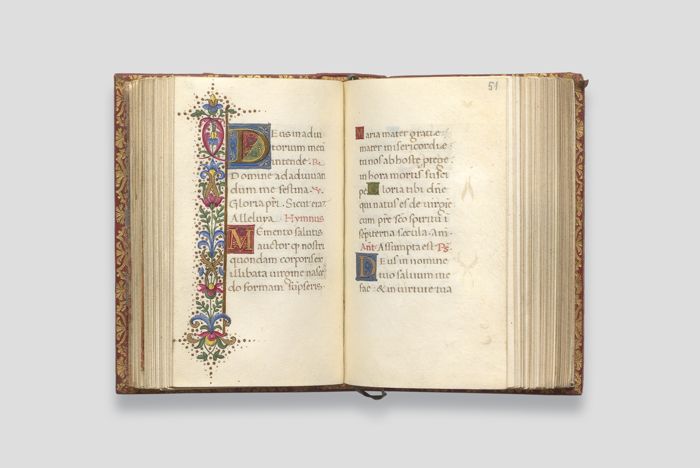 Deus in adiu
torium meū
intende. ℞.
Domine ad adiuvan
dum me festina. ℣.
Gloria pr̄i. Sicut erat
Alleluya. Hymnus
Memento salutis
auctor q nostri
quondam corporis ex
illibata virgine nascē
do formam sūpseris.
51
Maria mater gratie
mater misericordie
tu nos ab hoste protege
in hora mortis susci
pe. Gloria tibi dn̄e
qui natus es de virgīe
cum pr̄e & sc̄o spiritu ī
sēpiterna secula. Am.
Anṫ Assumpta est Ps.
Deus in nomine
tuo salvum me
fac: & in virtute tua